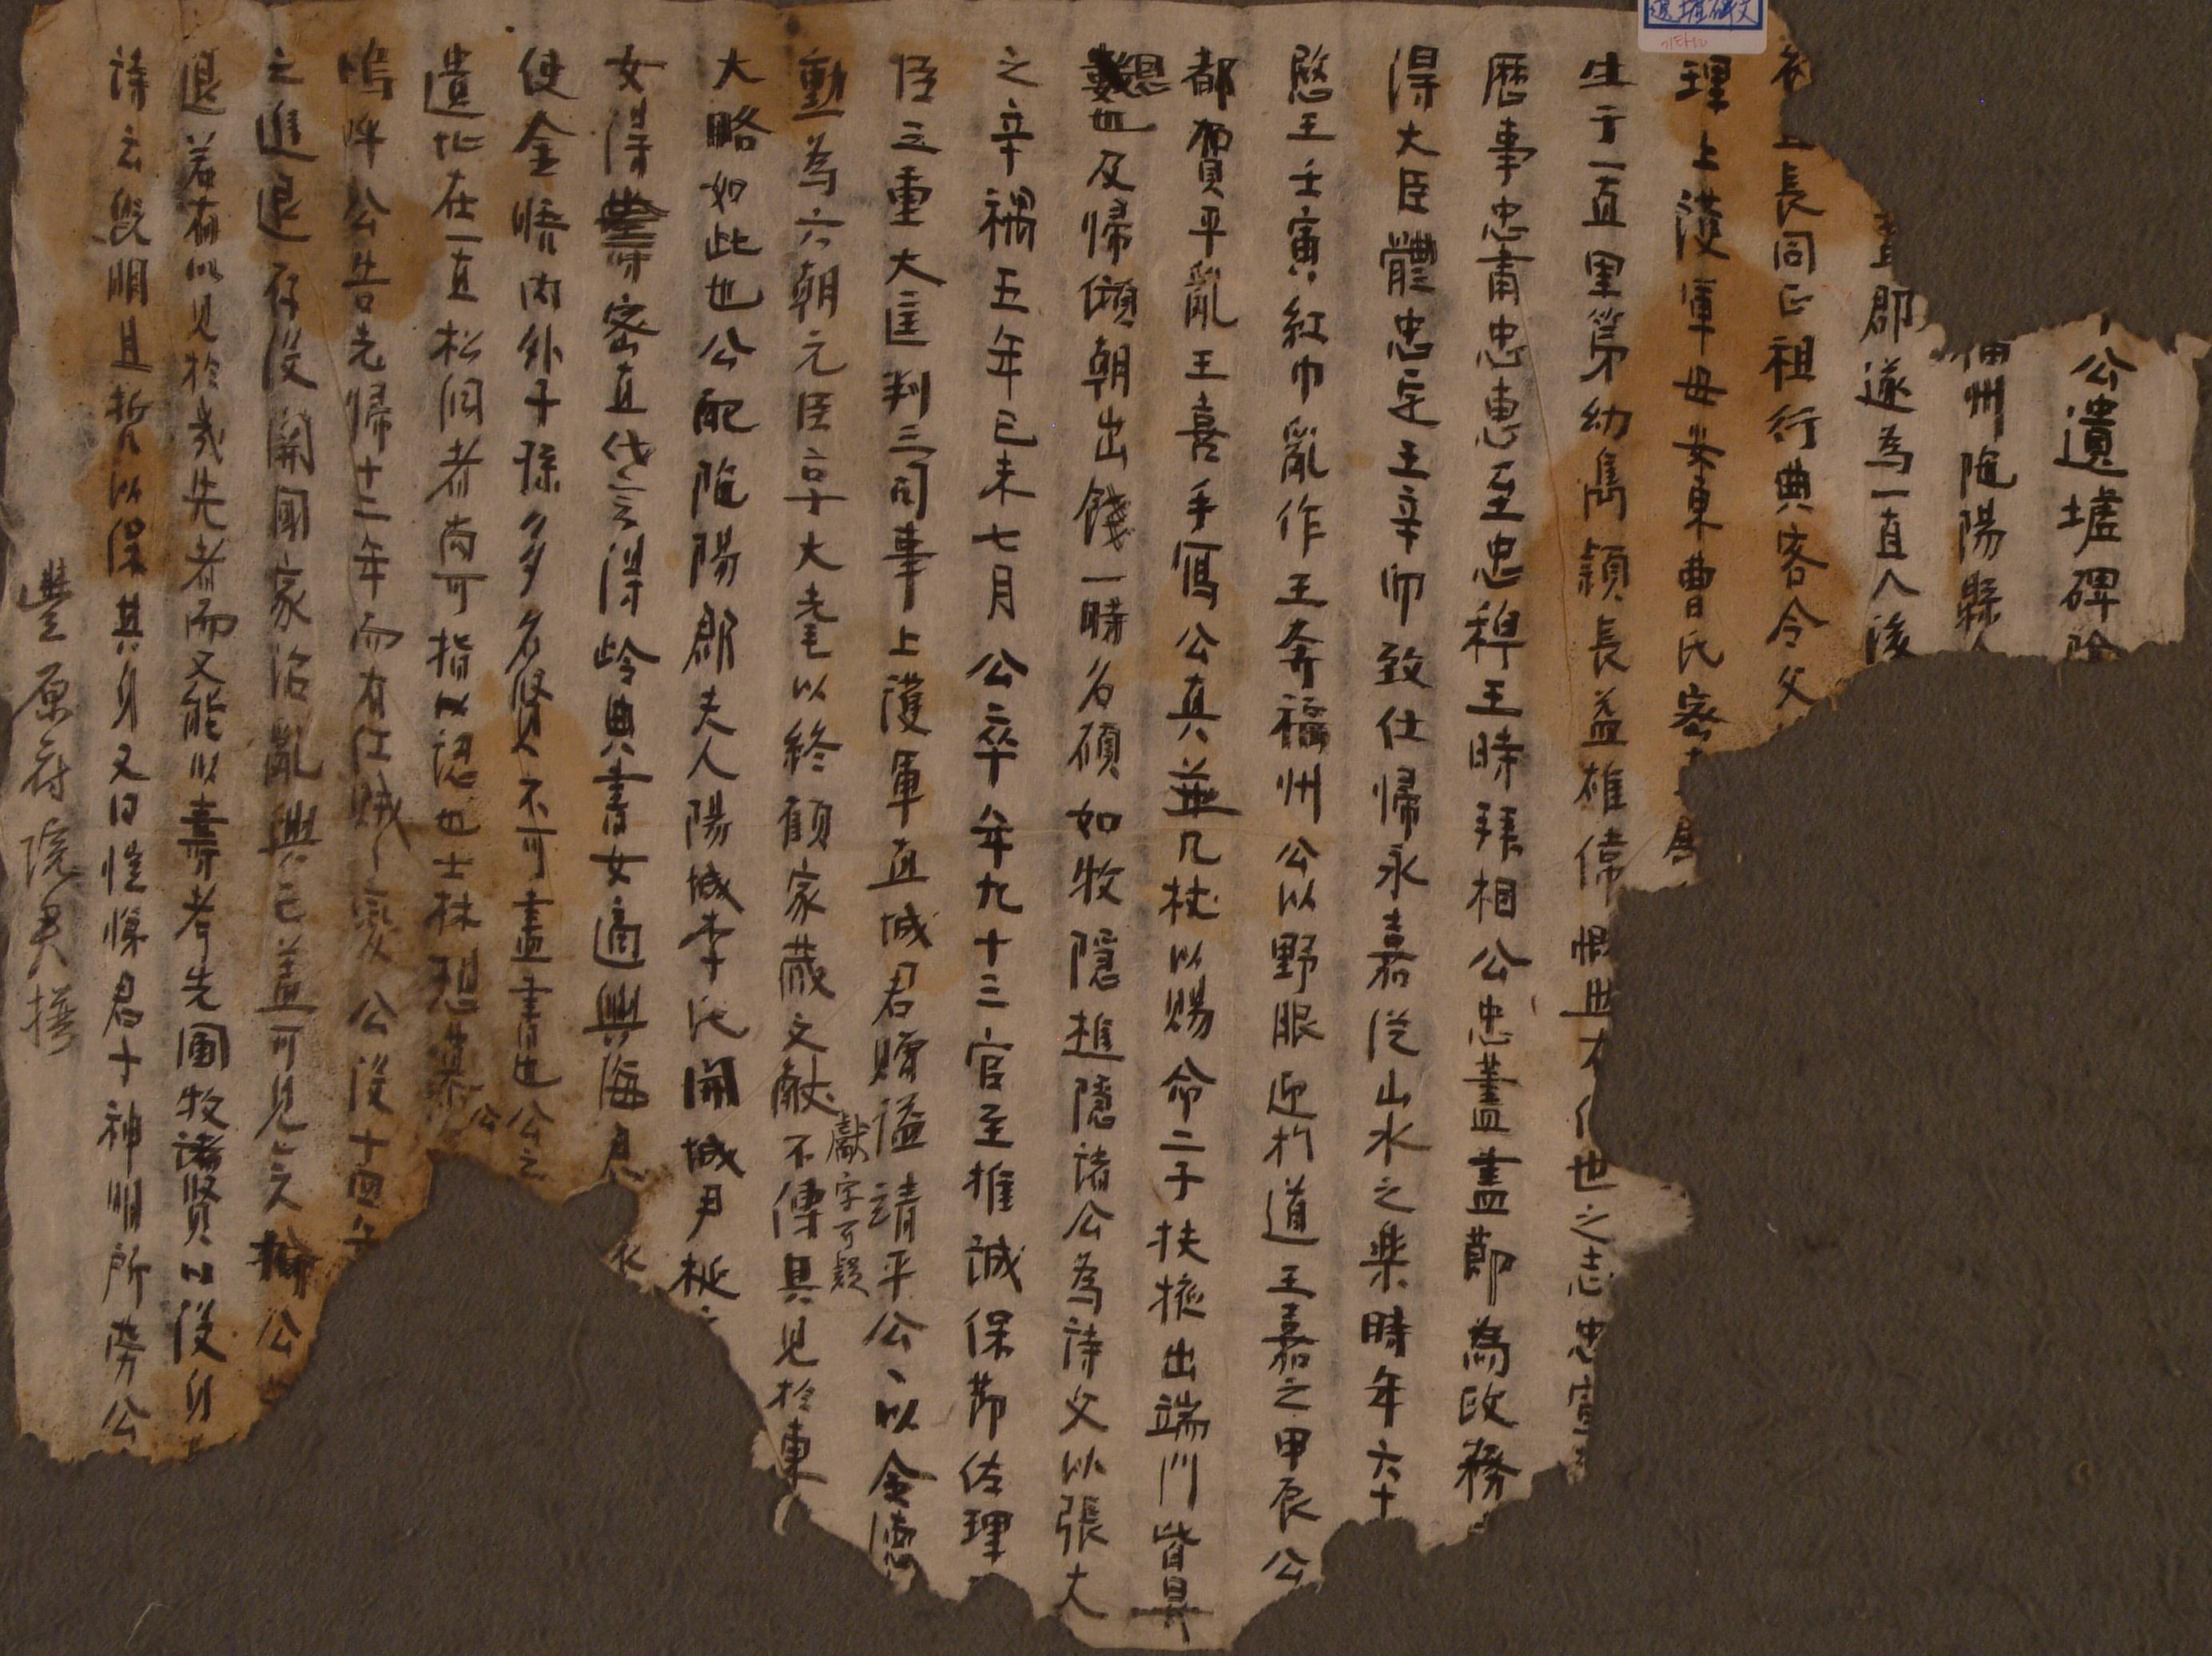 遺墟碑文
기타12
公遺墟碑陰
州陁陽縣人
郡遂為一直人後
上長同正祖行典客令父
理上護軍母安東曹氏密
生于一直里第幼雋頴長益雄偉慨世之志忠宣
歷事忠肅忠惠至忠穆王時拜相公忠蓋盡節為政務
得大臣體忠定王辛卯致仕歸永嘉從山水之樂時年六十
愍王壬寅紅巾亂作王奔福州公以野服迎於道王嘉之甲辰公
都賀平亂王喜手寫公真並几杖以賜命二子扶掖出端門皆異
數也及歸傾朝出餞一時名碩如牧隱樵隱諸公為詩文以張大
之辛禑五年己未七月公卒年九十三官至推誠保節佐理
臣三重大匡判三司事上護軍直城君贈謚靖平公丶以全德
動為六朝元臣享大耋以終顧家藏文獻不傳其見於東
獻字可疑
大略如此也公配陁陽郡夫人陽城李氏開城尹梴
女得壽密直代言得齡典書女適興海君
使金悟內外子孫多名賢不可盡書也公之
遺址在一直松洞者尚可指以認也士林想慕公
嗚呼公告老歸十二年而有紅賊之變公沒十四年
之進退存沒關國家治亂興亡盖可見矣揄公
退若有以見於幾先者而又能以壽考先圃牧諸賢以沒身
詩云旣明且哲以保其身又曰愷悌君子神明所勞公
豐原府院君撰